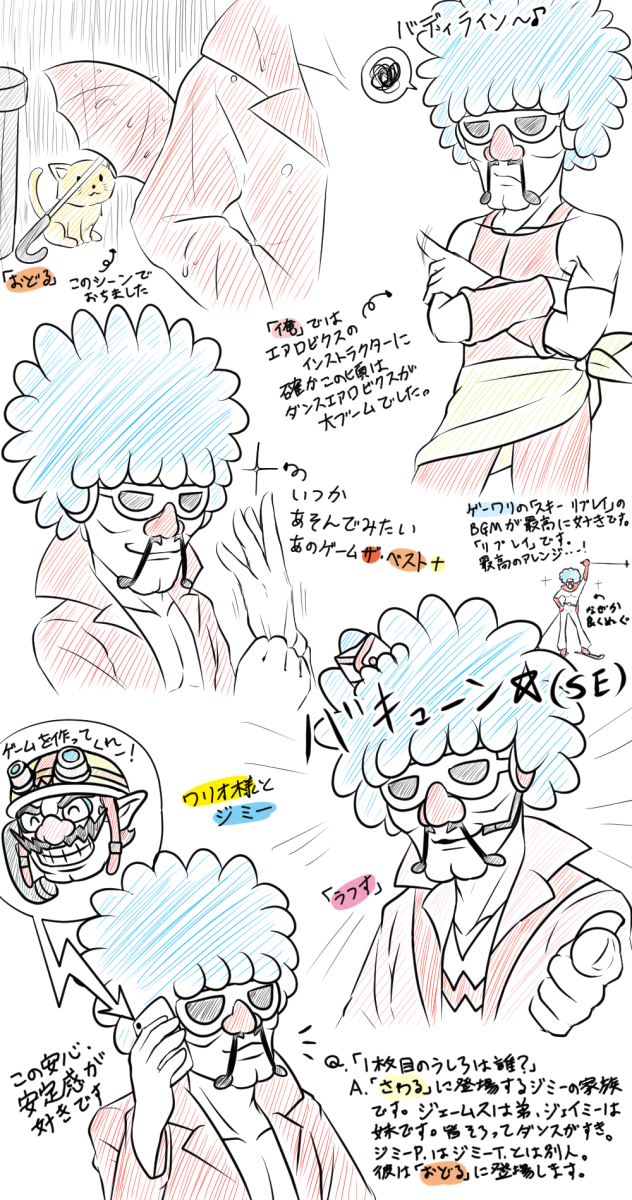 バディライン〜♪
「おどる」
このシーンで
おちました
「俺」では
エアロビクスの
インストラクターに
確かこの頃は
ダンスエアロビクスが
大ブームでした。
いつか
あそんでみたい
あのゲーム ザ・ベスト+
ゲーワリの「スキー リプレイ」の
BGMが最高に好きです。
「リプレイ」です。
最高のアレンジ…!
なぜか
良くぬぐ
バキューン☆(SE)
ゲームを作ってくれ!
ワリオ様と
ジミー
「うつす」
W
この安心、
安定感が
好きです
Q.「1枚目のうしろは誰?」
A.「さわる」に登場するジミーの家族
です。ジェームスは弟、ジェイミーは
妹です。皆そろってダンスがすき。
ジミーP.はジミーT.とは別人。
彼は「おどる」に登場します。